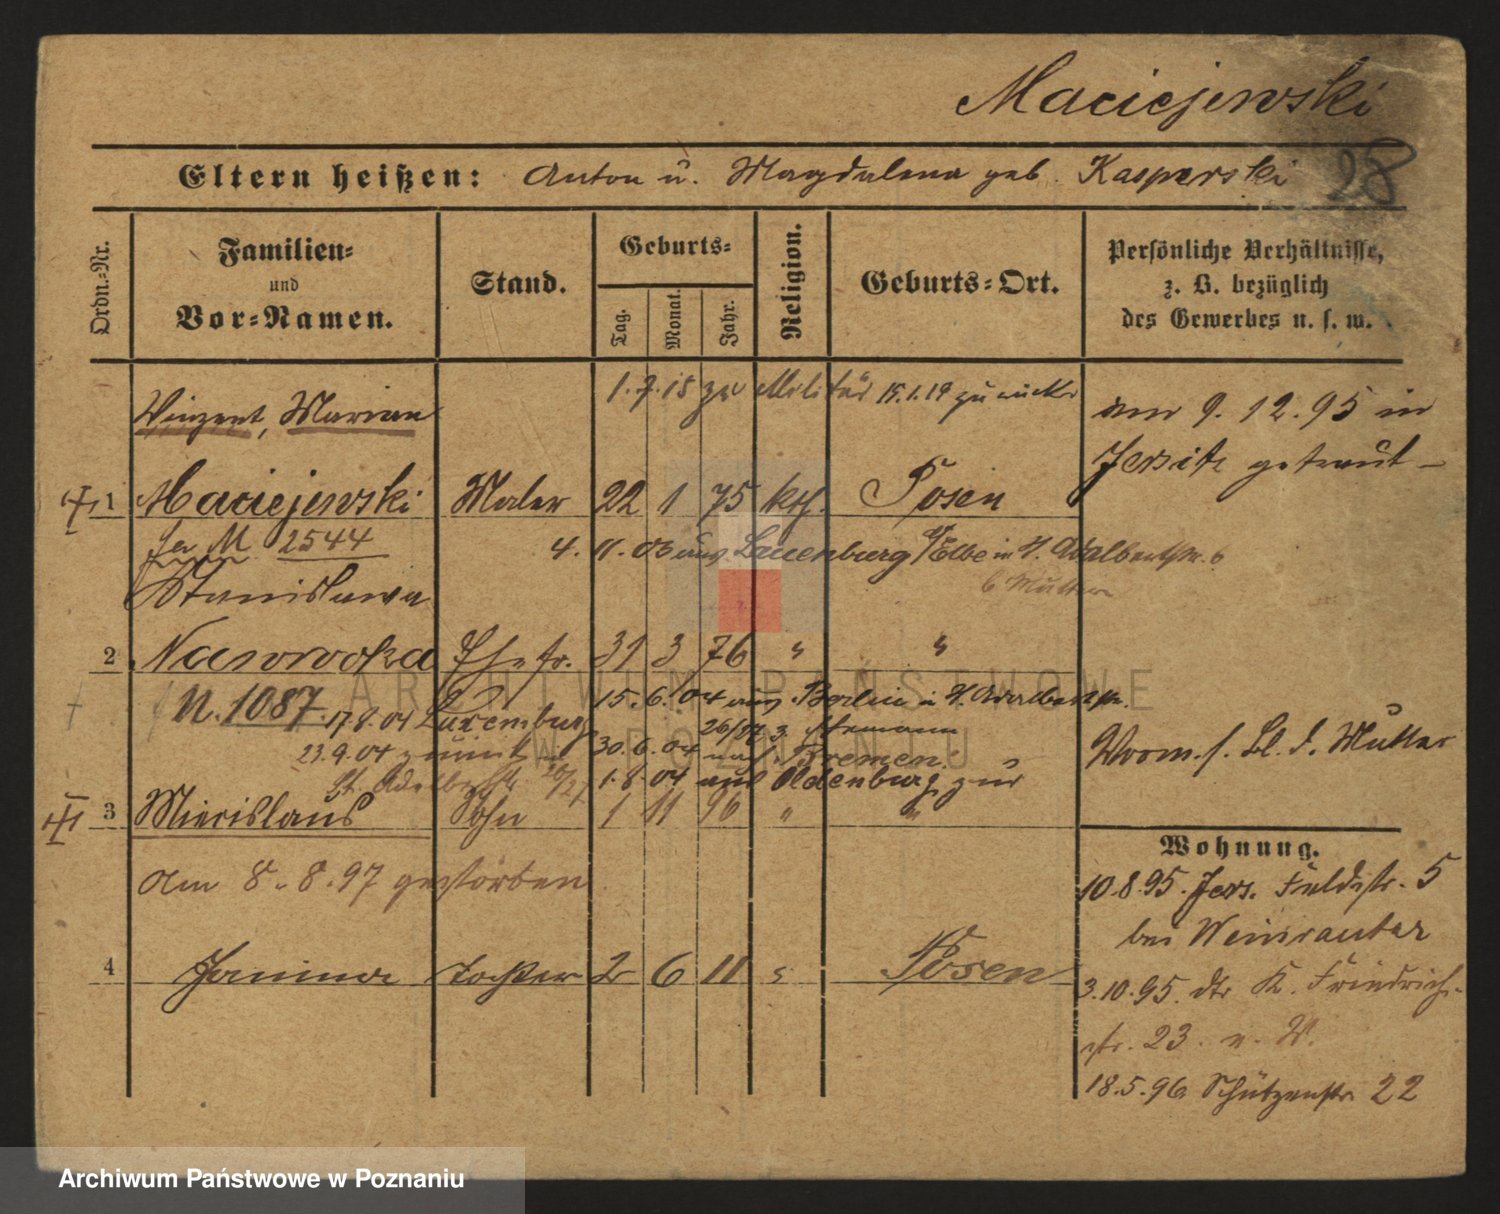 Maciejewski
28
Eltern heißen: Anton u. Magdalena geb. Kasperski
Ordn.=Nr.
Familien=
und
Vor=Namen.
Stand.
Geburts=
Tag.
Monat.
Jahr.
Religion.
Geburts=Ort.
Persönliche Verhältnisse,
z. B. bezüglich
des Gewerbes u. s. w.
1.7.15 zu Militär 15.1.19 zurück
Vinzent, Marian
am 9.12.95 in
Jersitz getraut
1 Maciejewski Maler 22 1 75 kth. Posen
M 2544
4. 11. 03 aus Lauenburg a/Elbe in St. Adalbertstr. 6
b Mutter
Stanislawa
2 Nawrocka Ehefr. 31 3 76 " "
N. 1087.
15.6.04 aus Berlin St. Adalbertstr.
17.8.04 Luxemburg
23.9.04 zurück
30.6.04 nach Bremen
St. Adalbertstr. 26/27
1.8.04 aus Oldenburg zur
Vorm. s. Bl. d. Mutter
3 Miecislaus Sohn 1 11 96 " "
am 8.8.97 gestorben
4 Janina Tochter 2 6 11 Posen
Wohnung.
10.8.95. Jers. Feldstr. 5
bei
3.10.95. dtr K. Friedrich-
str. 23. n. W.
18.5.96 Schützenstr. 22
ARCHIWUM PAŃSTWOWE
W POZNANIU
Archiwum Państwowe w Poznaniu